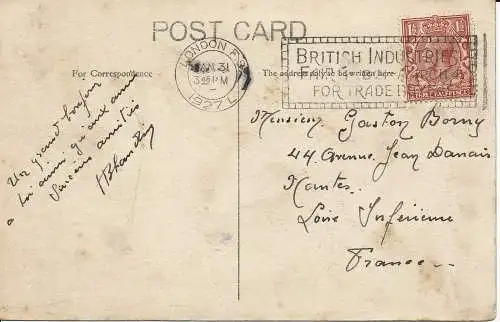 POST CARD
For Correspondence
The address only to be written here
LONDON F.S.
JAN 31
3 15 PM
1927
BRITISH INDUSTRIES
FAIR
FOR TRADE
Un grand bonjour
à toi ainsi qu'aux amis
Sincères amitiés
Monsieur Gaston Borny
44 Avenue Jean Danais
Nantes
Loire Inférieure
France